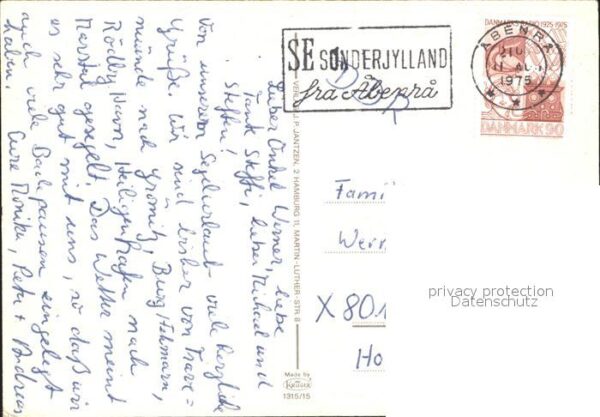 Lieber Onkel Werner, liebe
Tante Steffi, lieber Michael und
Steffen!
Von unserem Segelurlaub viel herzliche
Grüße. Wir sind bisher von Trave=
münde nach Grömitz, Burg Fehmarn,
Rödby Havn, Heiligenhafen nach
Marstal gesegelt. Das Wetter meint
es sehr gut mit uns, so daß wir
auch viele Badepausen eingelegt
haben. Eure Monika, Peter + Andreas
VERLAG J. P. JANTZEN, 2 HAMBURG 11, MARTIN-LUTHER-STR 8
Made by
Krüger
1315/15
SE SØNDERJYLLAND
fra Åbenrå
DDR
ÅBENRÅ
1975
DANMARKS RADIO 1925-1975
DANMARK 90
Fami
Wern
X 801
Ho
privacy protection
Datenschutz